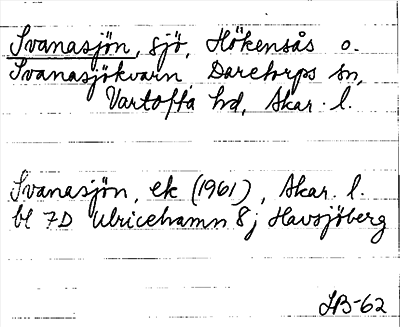 Svanasjön, sjö, Hökensås o.
Svanasjökvarn Daretorps sn,
Vartofta hd, Skar. l.
Svanasjön, ek (1961), Skar. l.
bl 7D Ulricehamn 8j Havsjöberg
LB-62